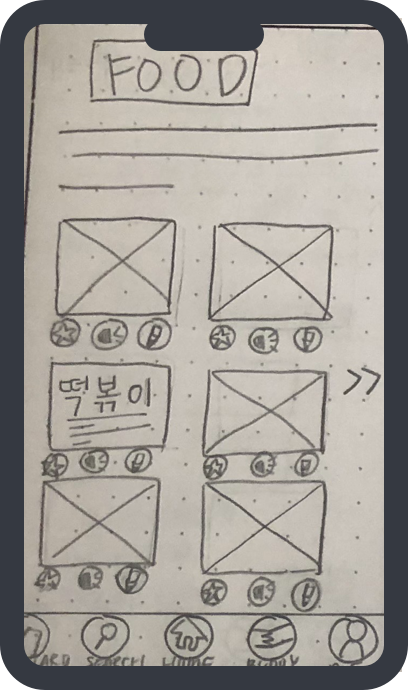 FOOD
떡볶이
SEARCH HOME BUDDY